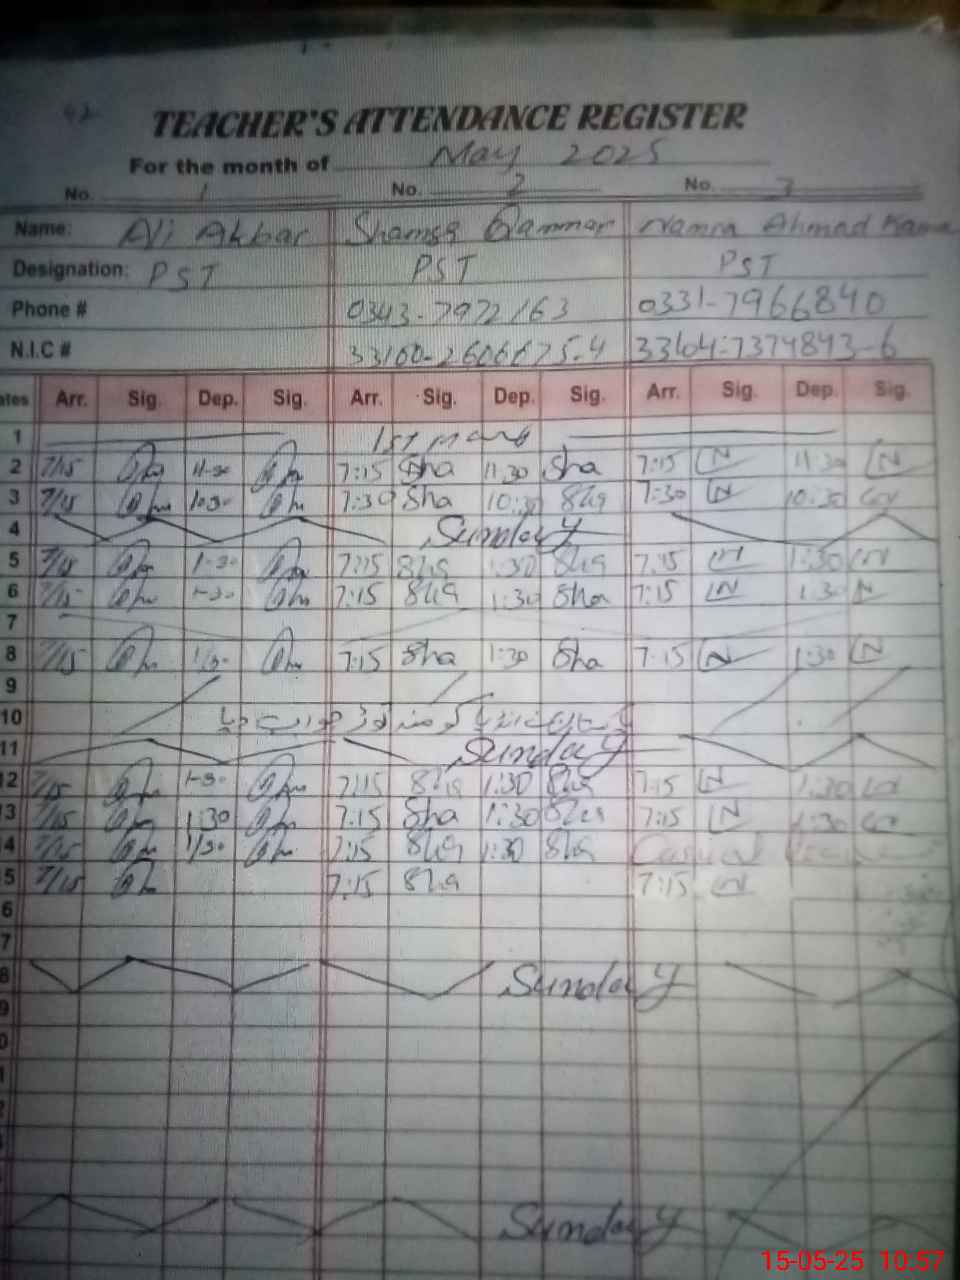 TEACHER'S ATTENDANCE REGISTER
For the month of May 2025
No. 1 No. 2 No. 3
Name: Ali Akbar Shamsa Qammar Namra Ahmad
Designation: PST PST PST
Phone # 0343-7972163 0331-7966840
N.I.C # 33100-2606675-4 33104-7374843-6
Arr. Sig. Dep. Sig. Arr. Sig. Dep. Sig. Arr. Sig. Dep. Sig.
1 1st
2 7/15 11-30 7:15 Sha 11:30 Sha 7:15 N 11:30 N
3 7/15 10-30 7:30 Sha 10:30 Sha 7:30 N 10:30
4 Sunday
5 7/15 1-30 7:15 Sha 1:30 Sha 7:15 N 1:30 N
6 7/15 1-30 7:15 Sha 1:30 Sha 7:15 N 1:30 N
7
8 7/15 1/30 7:15 Sha 1:30 Sha 7:15 N 1:30 N
9
10
11 Sunday
12 7/15 1-30 7:15 Sha 1:30 Sha 7:15 N 1:30
13 7/15 1:30 7:15 Sha 1:30 Sha 7:15 N 1:30
4 7/15 1/30 7:15 Sha 1:30 Sha Casual
5 7/15 7:15 Sha 7:15 N
6
7
8 Sunday
9
0
Sunday
15-05-25 10:57